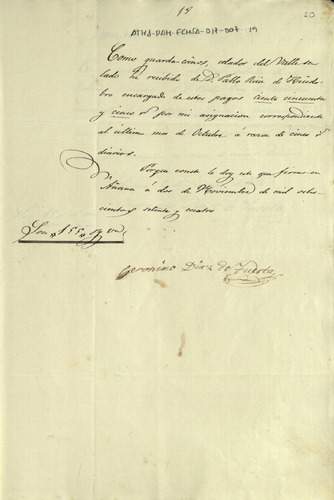 18
20
ATHA-DAH-FCHSA-017-007 19
Como guarda-cines, celador del Valle sa-
lado he recibido de D. Pablo Ruiz de Huido-
bro encargado de estos pagos ciento cincuenta
y cinco r.s por mi asignacion correspondiente
al último mes de Octubre á razon de cinco r.s
diarios.
Porque conste le doy este que firmo en
Añana á dos de Noviembre de mil ocho-
cientos setenta y cuatro
Son 155 r.s v.n
Geronimo Diaz de Tuesta